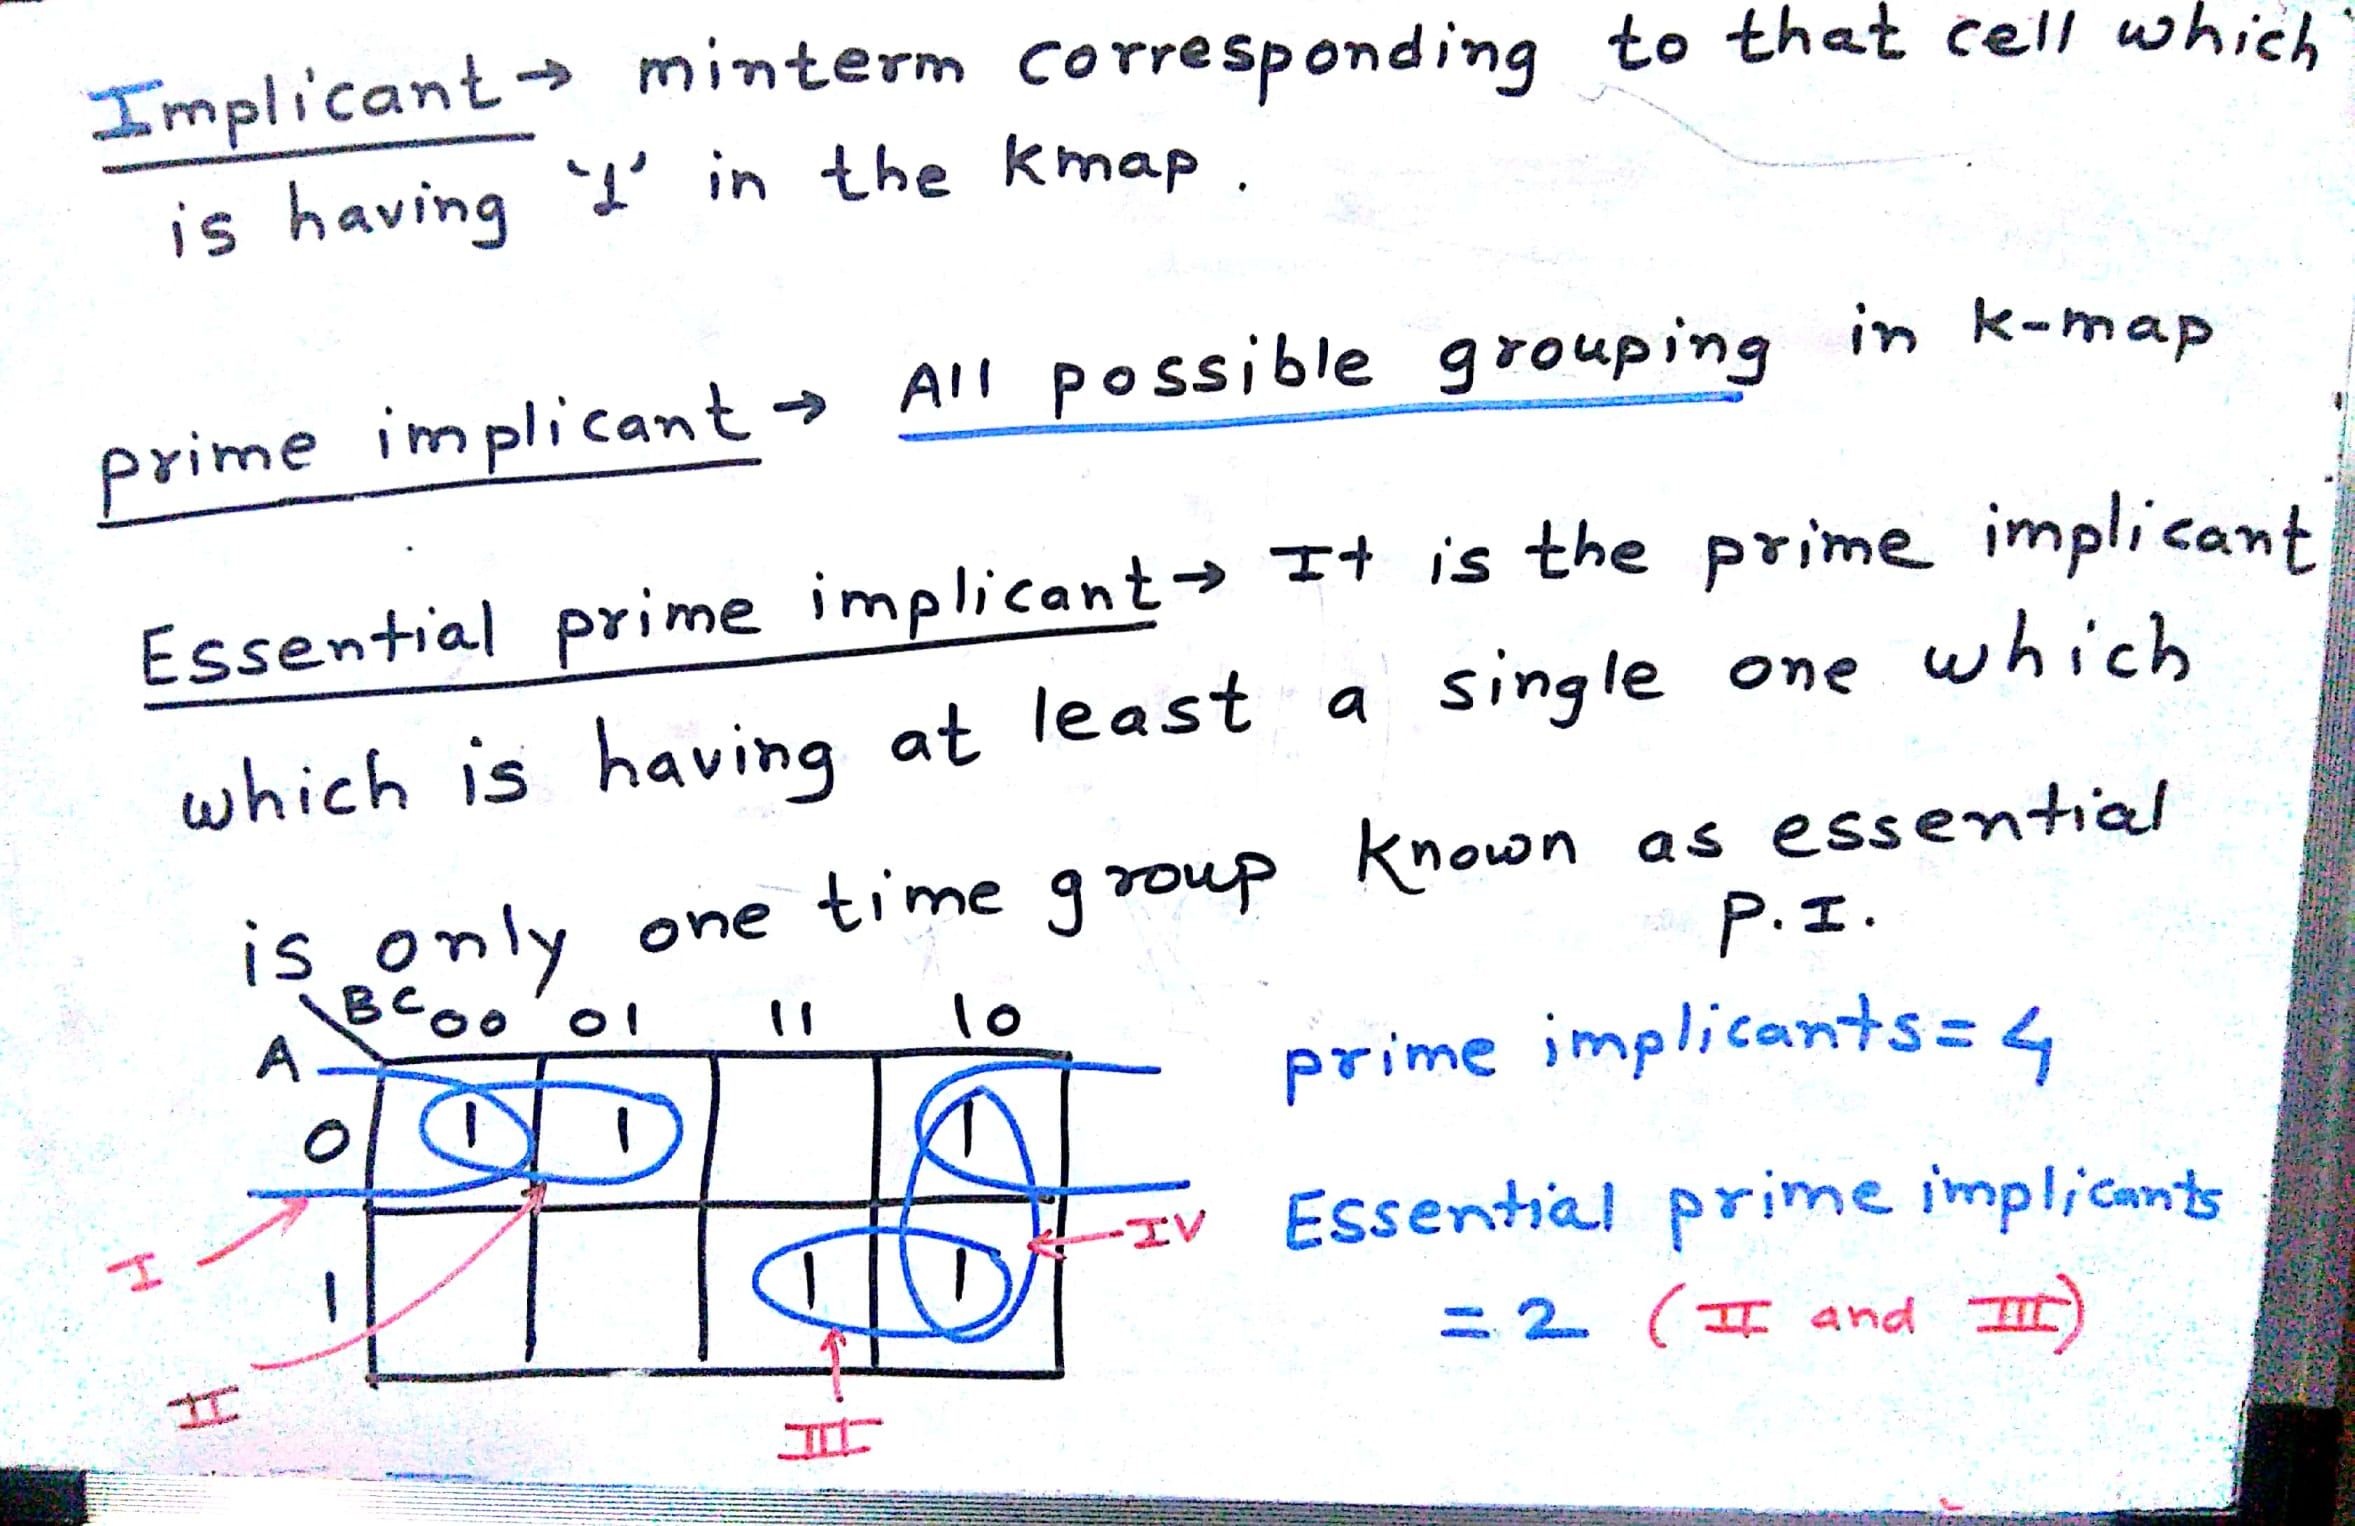 Implicant → minterm corresponding to that cell which
is having '1' in the Kmap.
prime implicant → All possible grouping in k-map
Essential prime implicant → It is the prime implicant
which is having at least a single one which
is only one time group known as essential
P.I.
BC 00 01 11 10
A
0 1 1 1
1 1 1
I
II
III
IV
prime implicants = 4
Essential prime implicants
= 2 (II and III)